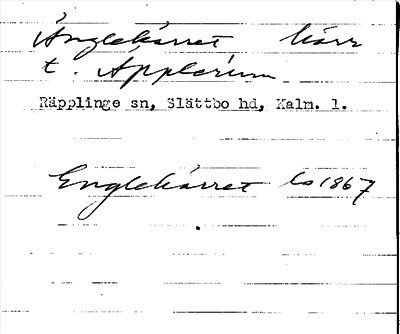 Änglekärret kärr
t. Äpplerum
Räpplinge sn, Slättbo hd, Kalm. l.
Englekärret ls 1867